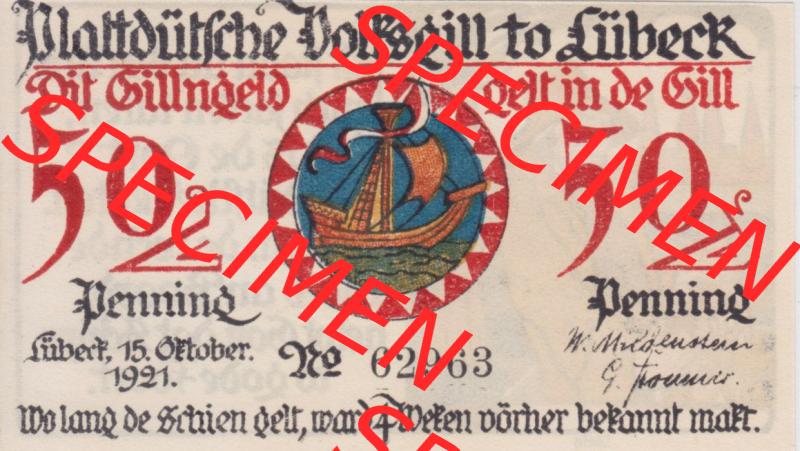 Plattdütsche Volksgill to Lübeck
Dit Gillngeld gelt in de Gill
50 50
Penning Penning
Lübeck, 15. Oktober.
1921.
No 62963
Wo lang de Schien gelt, ward 4 Weken vörher bekannt makt.
SPECIMEN
SPECIMEN